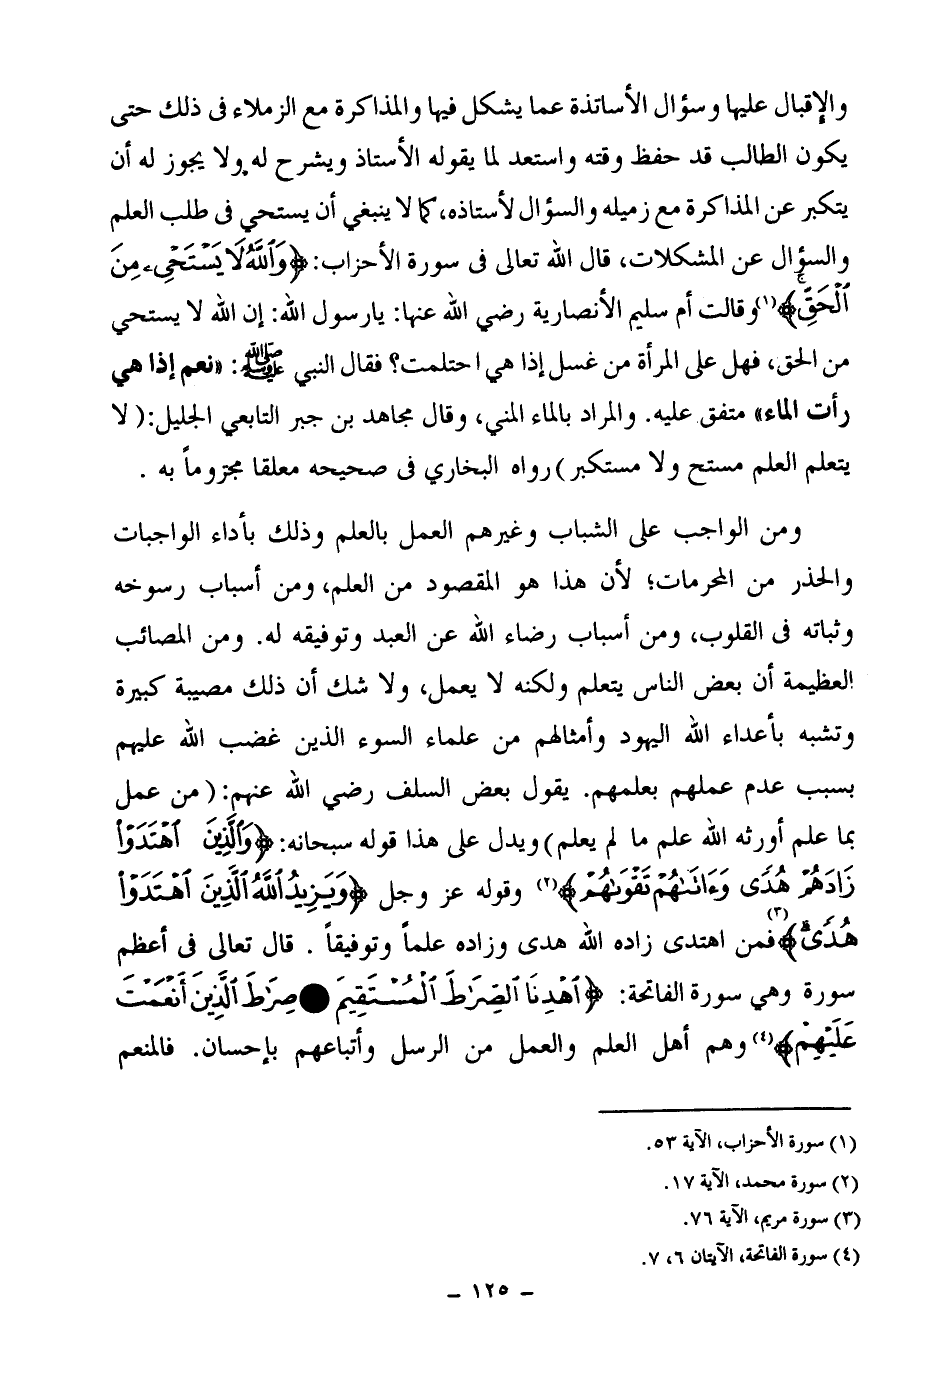 والإقبال عليها وسؤال الأساتذة عما يشكل فيها والمذاكرة مع الزملاء فى ذلك حتى
يكون الطالب قد حفظ وقته واستعد لما يقوله الأستاذ ويشرح له. ولا يجوز له أن
يتكبر عن المذاكرة مع زميله والسؤال لأستاذه، كما لا ينبغي أن يستحي فى طلب العلم
والسؤال عن المشكلات، قال الله تعالى فى سورة الأحزاب: ﴿وَٱللَّهُ لَا يَسْتَحْيِۦ مِنَ
ٱلْحَقِّ﴾(١) وقالت أم سليم الأنصارية رضي الله عنها: يارسول الله: إن الله لا يستحي
من الحق، فهل على المرأة من غسل إذا هي احتلمت؟ فقال النبي ﷺ: «نعم إذا هي
رأت الماء» متفق عليه. والمراد بالماء المني، وقال مجاهد بن جبر التابعي الجليل: ( لا
يتعلم العلم مستح ولا مستكبر ) رواه البخاري فى صحيحه معلقا مجزوماً به .
ومن الواجب على الشباب وغيرهم العمل بالعلم وذلك بأداء الواجبات
والحذر من المحرمات؛ لأن هذا هو المقصود من العلم، ومن أسباب رسوخه
وثباته فى القلوب، ومن أسباب رضاء الله عن العبد وتوفيقه له. ومن المصائب
العظيمة أن بعض الناس يتعلم ولكنه لا يعمل، ولا شك أن ذلك مصيبة كبيرة
وتشبه بأعداء الله اليهود وأمثالهم من علماء السوء الذين غضب الله عليهم
بسبب عدم عملهم بعلمهم. يقول بعض السلف رضي الله عنهم: ( من عمل
بما علم أورثه الله علم ما لم يعلم ) ويدل على هذا قوله سبحانه: ﴿وَٱلَّذِينَ ٱهْتَدَوْا۟
زَادَهُمْ هُدًى وَءَاتَىٰهُمْ تَقْوَىٰهُمْ﴾(٢) وقوله عز وجل ﴿وَيَزِيدُ ٱللَّهُ ٱلَّذِينَ ٱهْتَدَوْا۟
هُدًى﴾(٣) فمن اهتدى زاده الله هدى وزاده علماً وتوفيقاً . قال تعالى فى أعظم
سورة وهي سورة الفاتحة: ﴿ٱهْدِنَا ٱلصِّرَٰطَ ٱلْمُسْتَقِيمَ ● صِرَٰطَ ٱلَّذِينَ أَنْعَمْتَ
عَلَيْهِمْ﴾(٤) وهم أهل العلم والعمل من الرسل وأتباعهم بإحسان. فالمنعم
(١) سورة الأحزاب، الآية ٥٣.
(٢) سورة محمد، الآية ١٧.
(٣) سورة مريم، الآية ٧٦.
(٤) سورة الفاتحة، الآيتان ٦، ٧.
– ١٢٥ –